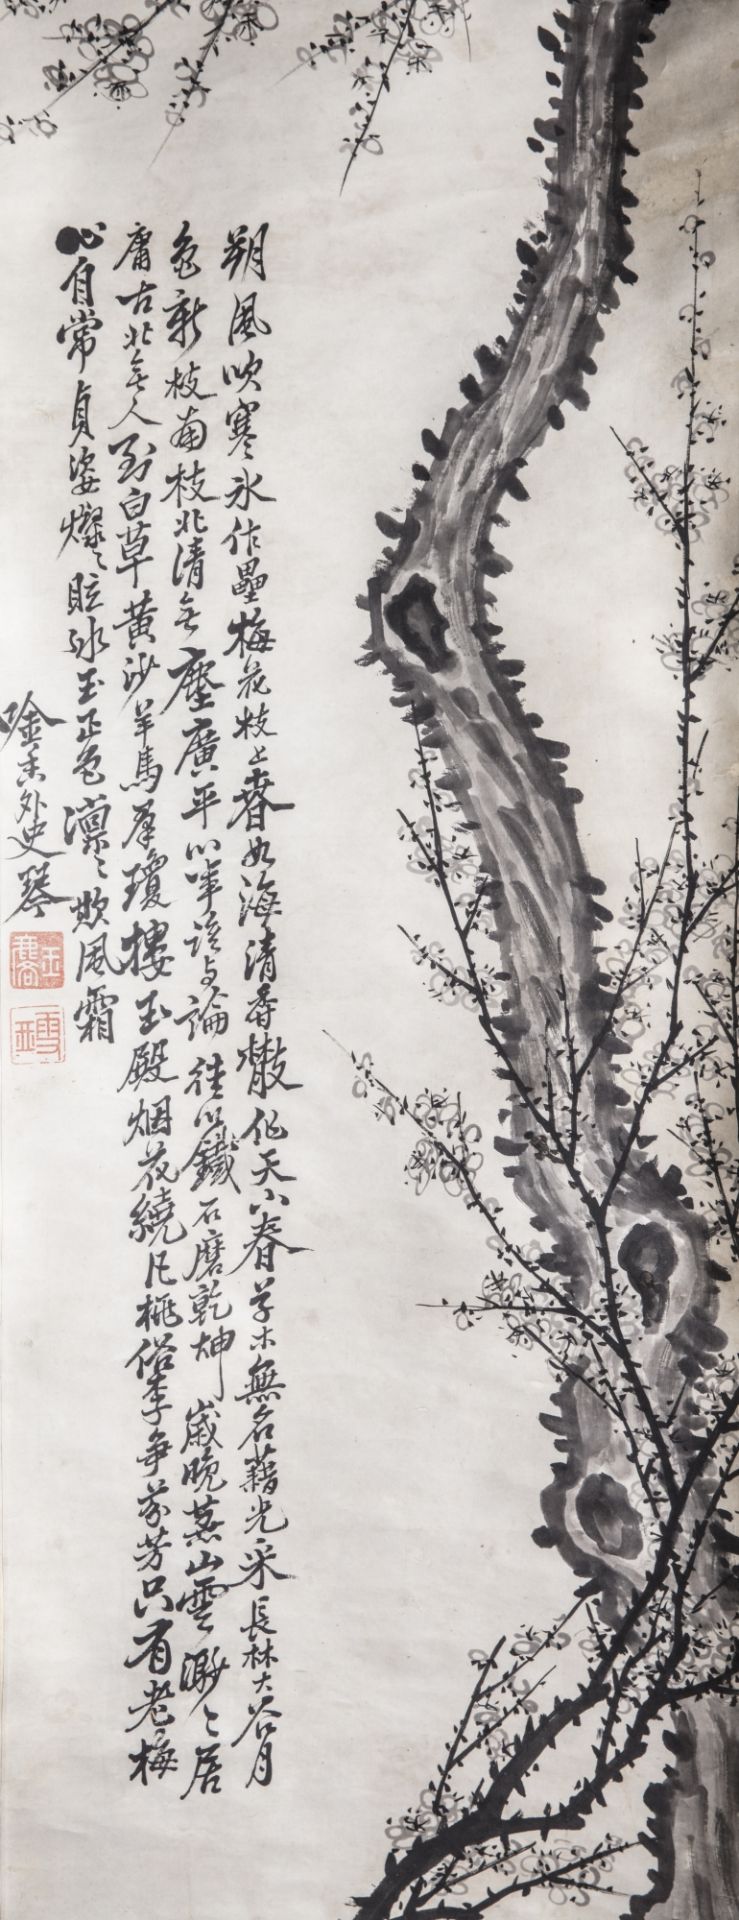 朔風吹寒冰作壘梅花枝上春如海清香散作天下春草木無名藉光采長林大谷月
色新枝南枝北清無塵廣平心事誰與論徒以鐵石磨乾坤歲晚燕山雲渺〻居
庸古北無人到白草黃沙羊馬群瓊樓玉殿烟花繞凡桃俗李爭芬芳只有老梅
心自常貞姿燦〻眩冰玉正色凜〻欺風霜
外史琴